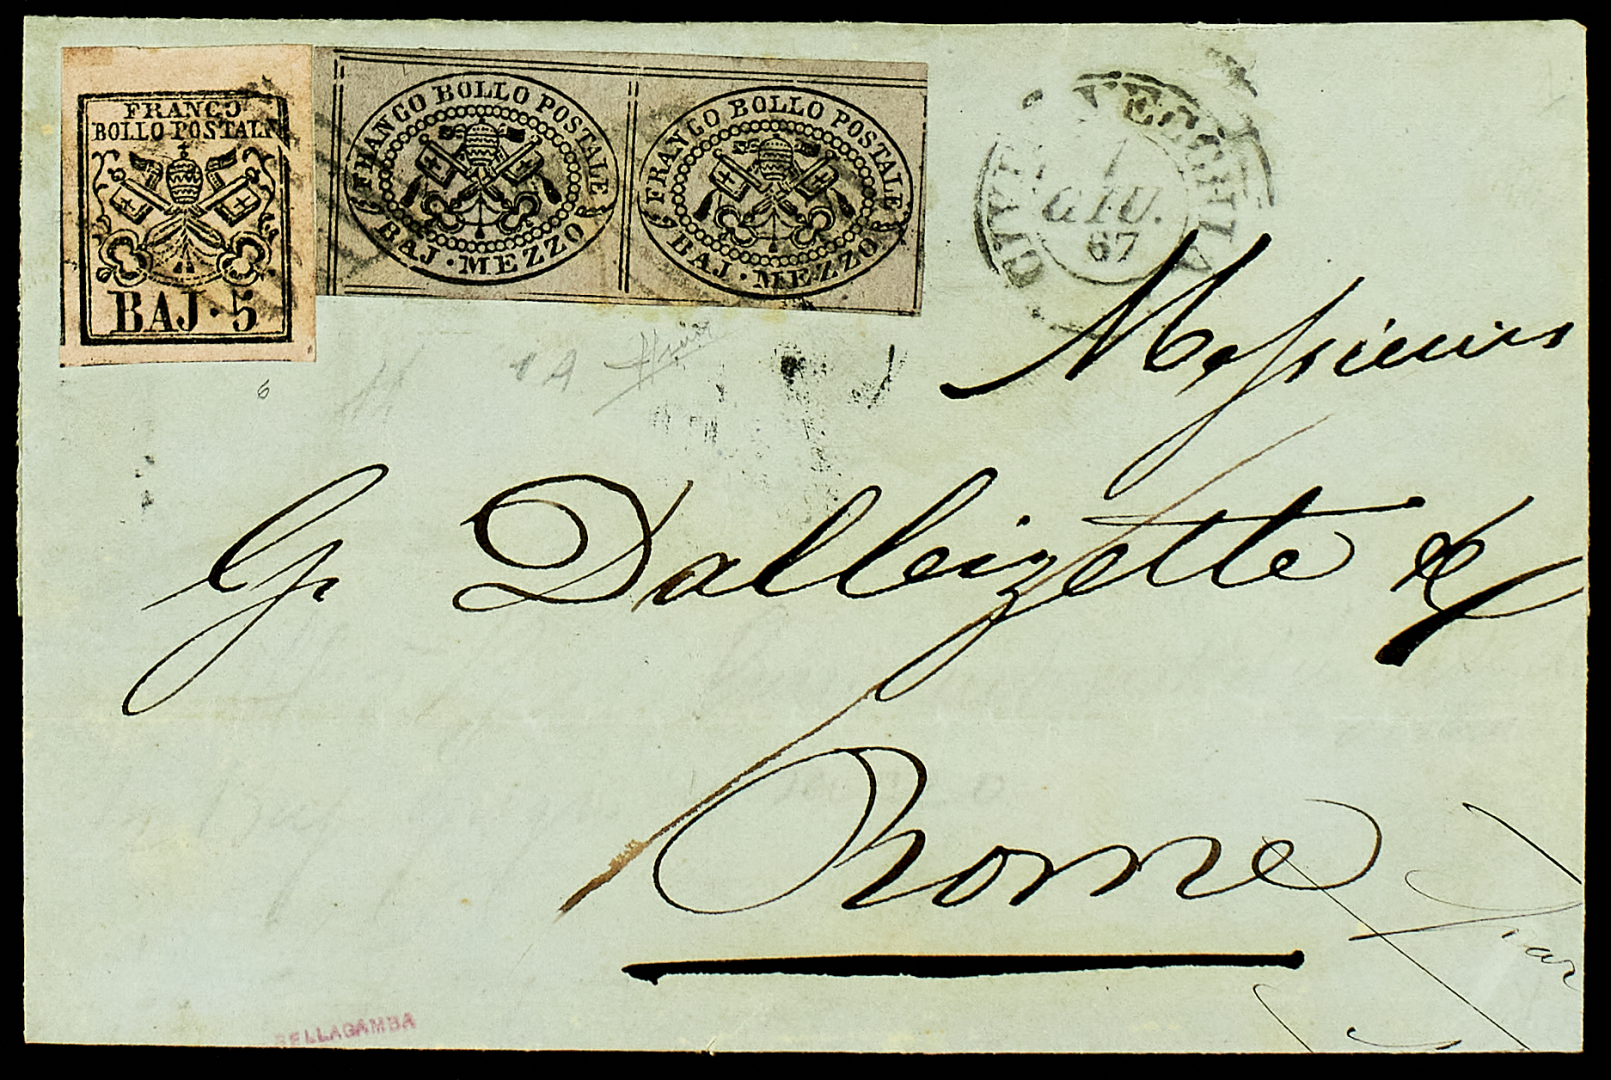 FRANCO
BOLLO POSTALE
BAJ·5
FRANCO BOLLO POSTALE
BAJ·MEZZO
FRANCO BOLLO POSTALE
BAJ·MEZZO
CIVITAVECCHIA
1
GIU.
67
6
1A
Messieurs
G. Dalleizette & C
Rome
BELLAGAMBA